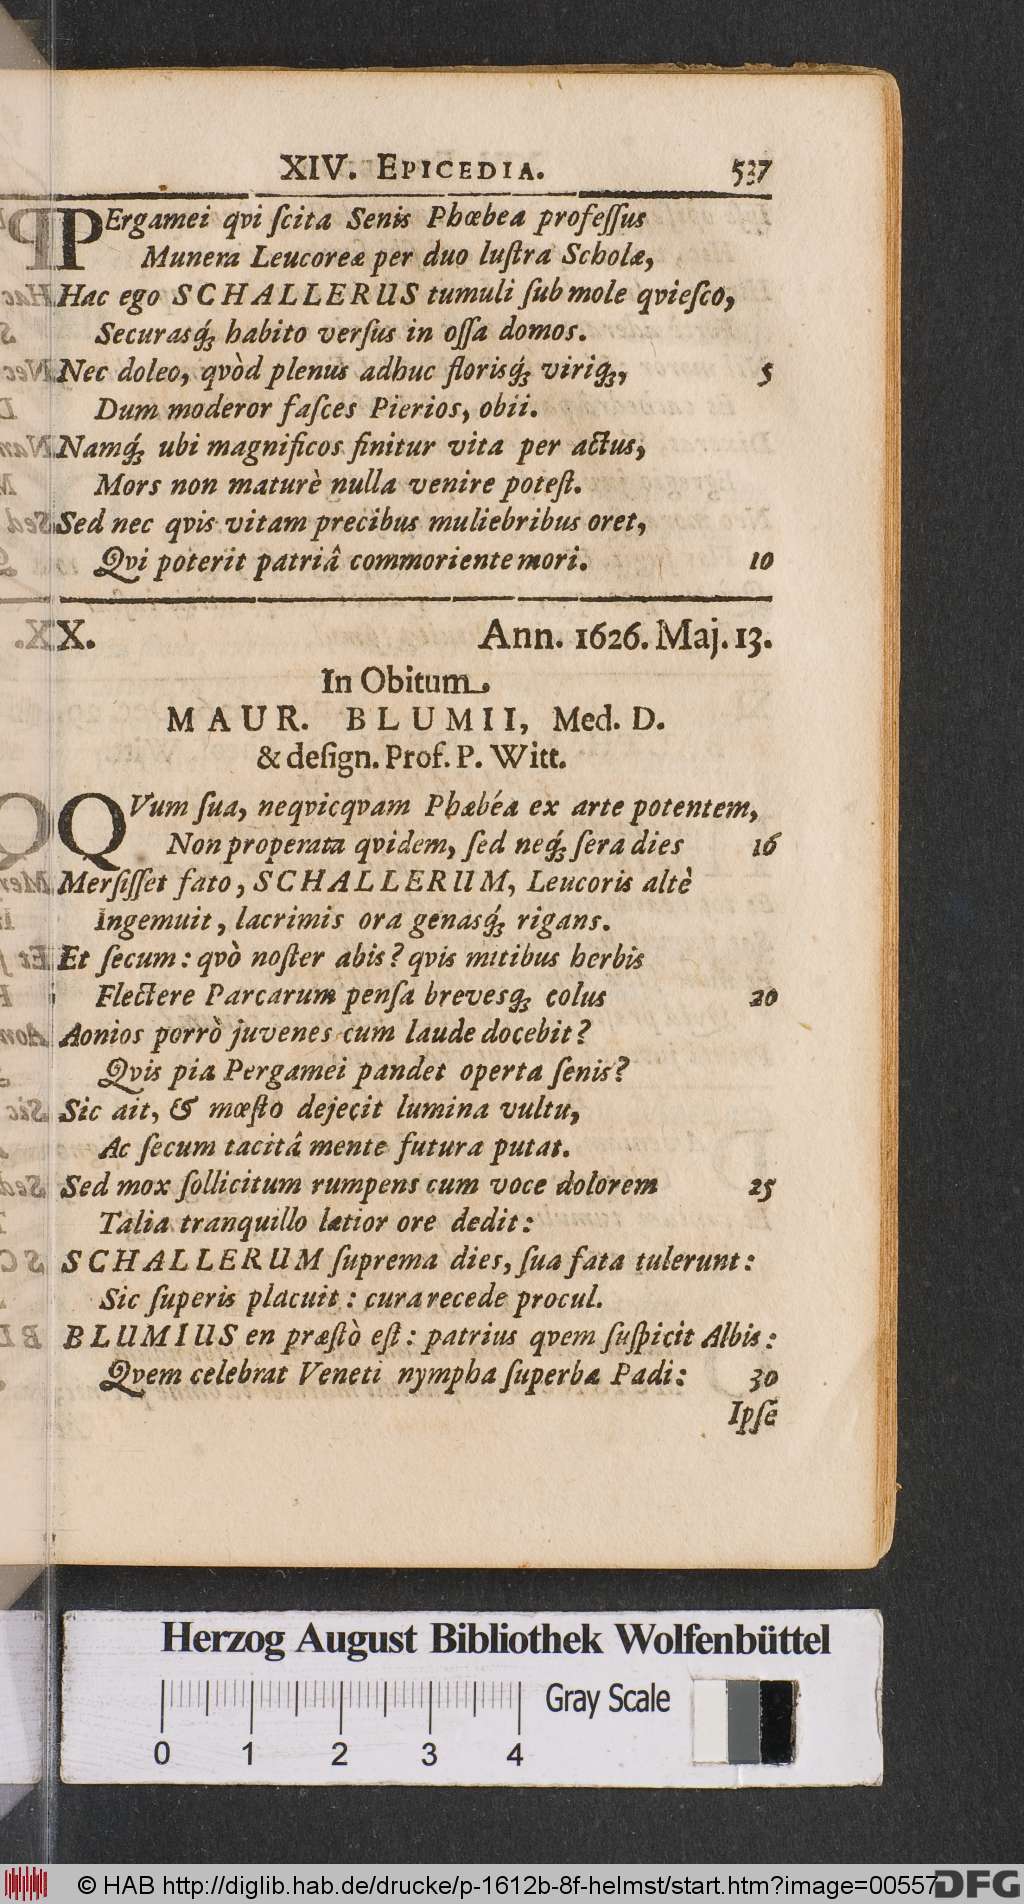 XIV. EPICEDIA. 537
PErgamei qvi ſcita Senis Phœbea profeſſus
Munera Leucoreæ per duo luſtra Scholæ,
Hac ego SCHALLERUS tumuli ſub mole qvieſco,
Securasq́; habito verſus in oſſa domos.
Nec doleo, qvòd plenus adhuc florisq́; viriq́;, 5
Dum moderor faſces Pierios, obii.
Namq́; ubi magnificos finitur vita per actus,
Mors non maturè nulla venire poteſt.
Sed nec qvis vitam precibus muliebribus oret,
Qvi poterit patriâ commoriente mori. 10
XX. Ann. 1626. Maj. 13.
In Obitum
MAUR. BLUMII, Med. D.
& deſign. Prof. P. Witt.
QVum ſua, neqvicqvam Phæbéa ex arte potentem,
Non properata qvidem, ſed neq́; ſera dies 16
Merſiſſet fato, SCHALLERUM, Leucoris altè
Ingemuit, lacrimis ora genasq́; rigans.
Et ſecum: qvò noſter abis? qvis mitibus herbis
Flectere Parcarum penſa brevesq́; colus 20
Aonios porrò juvenes cum laude docebit?
Qvis pia Pergamei pandet operta ſenis?
Sic ait, & mœſto dejecit lumina vultu,
Ac ſecum tacitâ mente futura putat.
Sed mox ſollicitum rumpens cum voce dolorem 25
Talia tranquillo lætior ore dedit:
SCHALLERUM ſuprema dies, ſua fata tulerunt:
Sic ſuperis placuit: cura recede procul.
BLUMIUS en præſtò eſt: patrius qvem ſuſpicit Albis:
Qvem celebrat Veneti nympha ſuperba Padi: 30
Ipſe
Herzog August Bibliothek Wolfenbüttel
Gray Scale
0 1 2 3 4
© HAB http://diglib.hab.de/drucke/p-1612b-8f-helmst/start.htm?image=00557
DFG